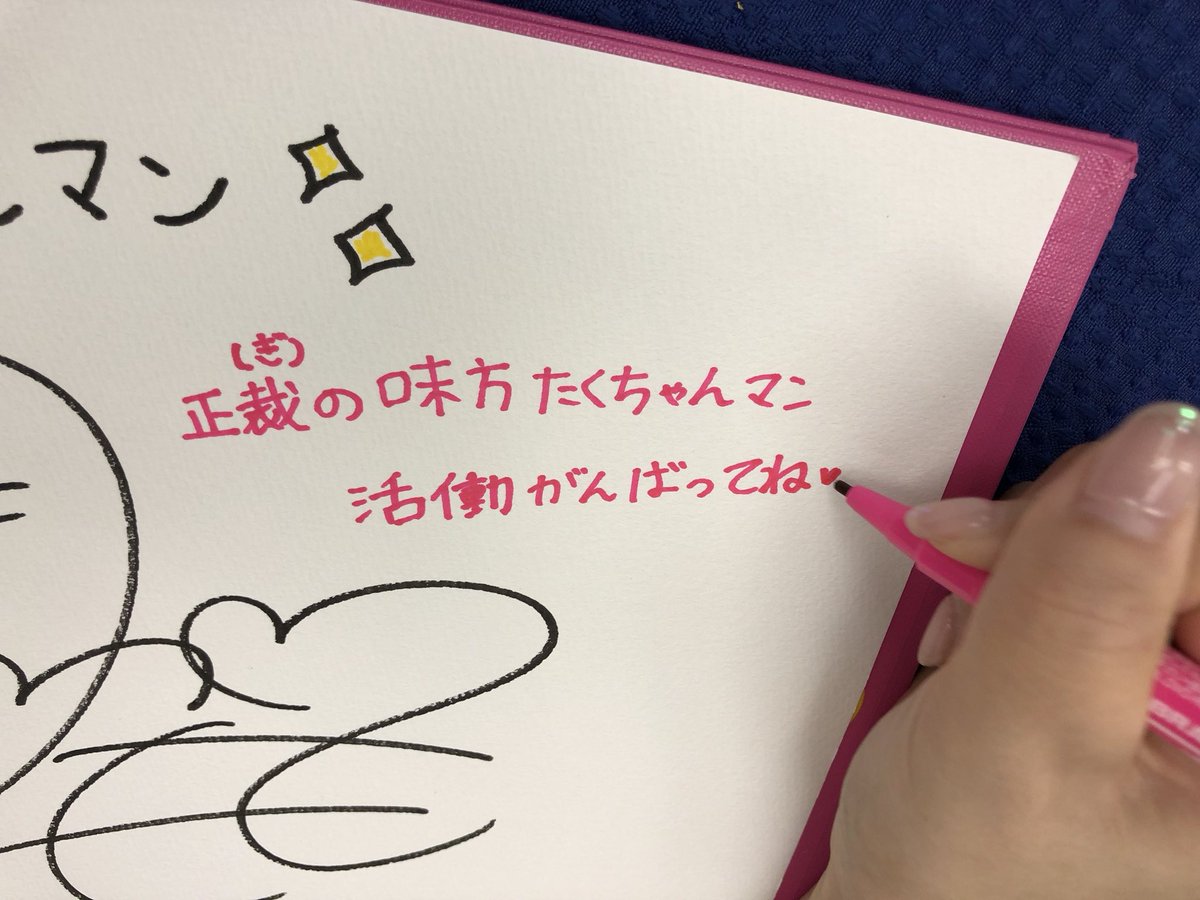 マン
(ぎ)
正裁の味方たくちゃんマン
活働がんばってね♥